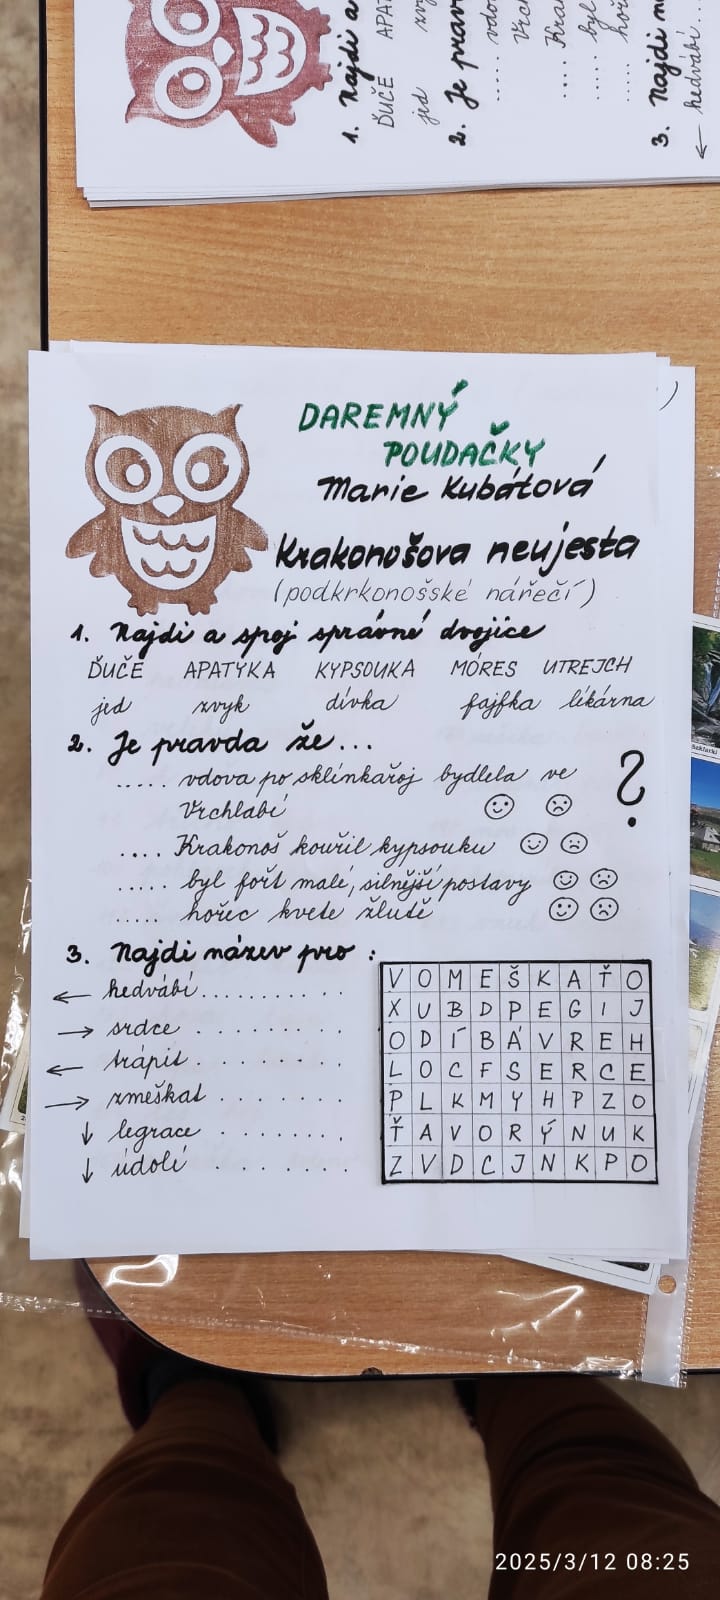 1. Najdi a
ĎUČE APAT
jed zvy
2. Je prav
..... vdo
Vrch
.... Kra
..... byl
..... hoř
3. Najdi n
← hedvábí...
DAREMNÝ
POUDAČKY
Marie Kubátová
Krakonošova neujesta
(podkrkonošské nářečí)
1. Najdi a spoj správné dvojice
ĎUČE APATYKA KYPSOUKA MÓRES UTREJCH
jed zvyk dívka fajfka lékárna
2. Je pravda že...
..... vdova po sklínkařoj bydlela ve
Vrchlabí ?
.... Krakonoš kouřil kypsouku
..... byl fořt malé, silnější postavy
..... hořec kvete žlutě
3. Najdi název pro :
← hedvábí..........
→ srdce ..........
← trápit ........
→ zmeškat ........
↓ legrace ........
↓ údolí ........
V O M E Š K A Ť O
X U B D P E G I J
O D Í B Á V R E H
L O C F S E R C E
P L K M Y H P Z O
Ť A V O R Ý N U K
Z V D C J N K P O
2025/3/12 08:25